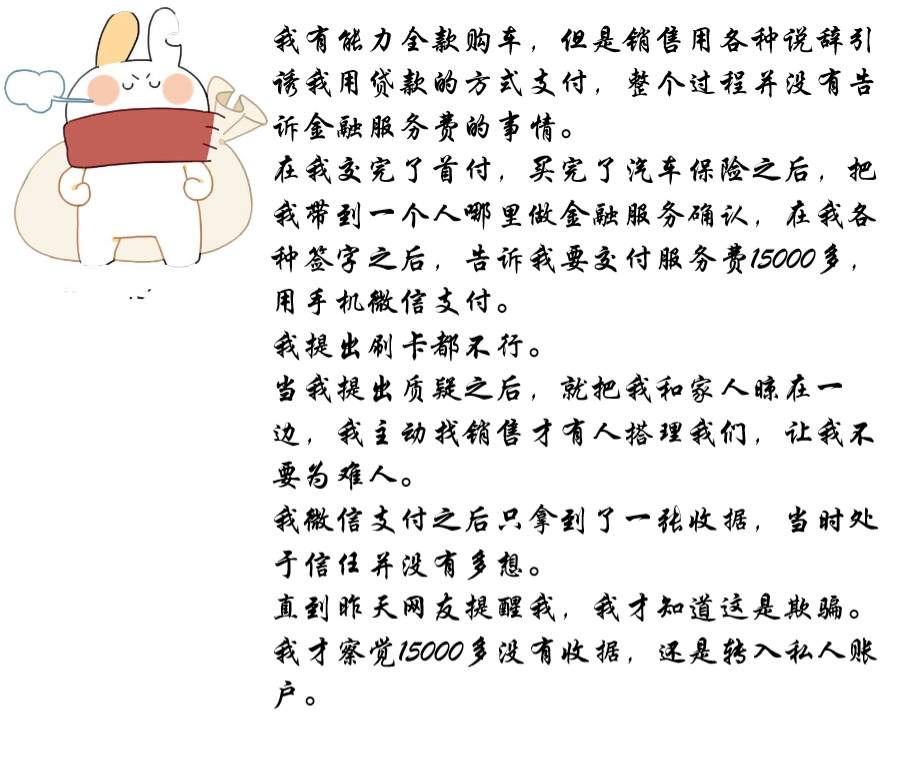 我有能力全款购车，但是销售用各种说辞引
诱我用贷款的方式支付，整个过程并没有告
诉金融服务费的事情。
在我交完了首付，买完了汽车保险之后，把
我带到一个人哪里做金融服务确认，在我各
种签字之后，告诉我要交付服务费15000多，
用手机微信支付。
我提出刷卡都不行。
当我提出质疑之后，就把我和家人晾在一
边，我主动找销售才有人搭理我们，让我不
要为难人。
我微信支付之后只拿到了一张收据，当时处
于信任并没有多想。
直到昨天网友提醒我，我才知道这是欺骗。
我才察觉15000多没有收据，还是转入私人账
户。